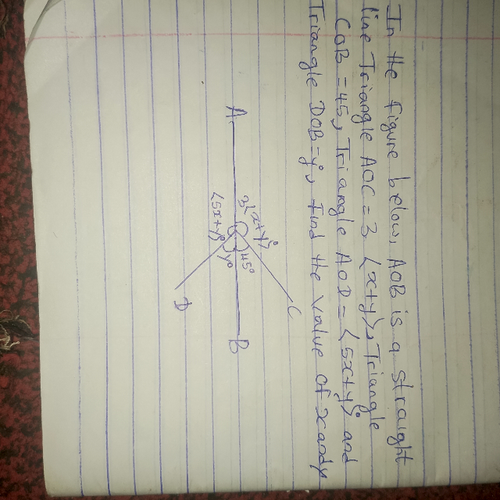 In the figure below, AOB is a straight
line Triangle AOC = 3 (x+y)°, Triangle
COB = 45°, Triangle AOD = (5x+y)° and
Triangle DOB = y°, find the value of x and y
A
3(x+y)°
45°
C
(5x+y)°
y°
B
D